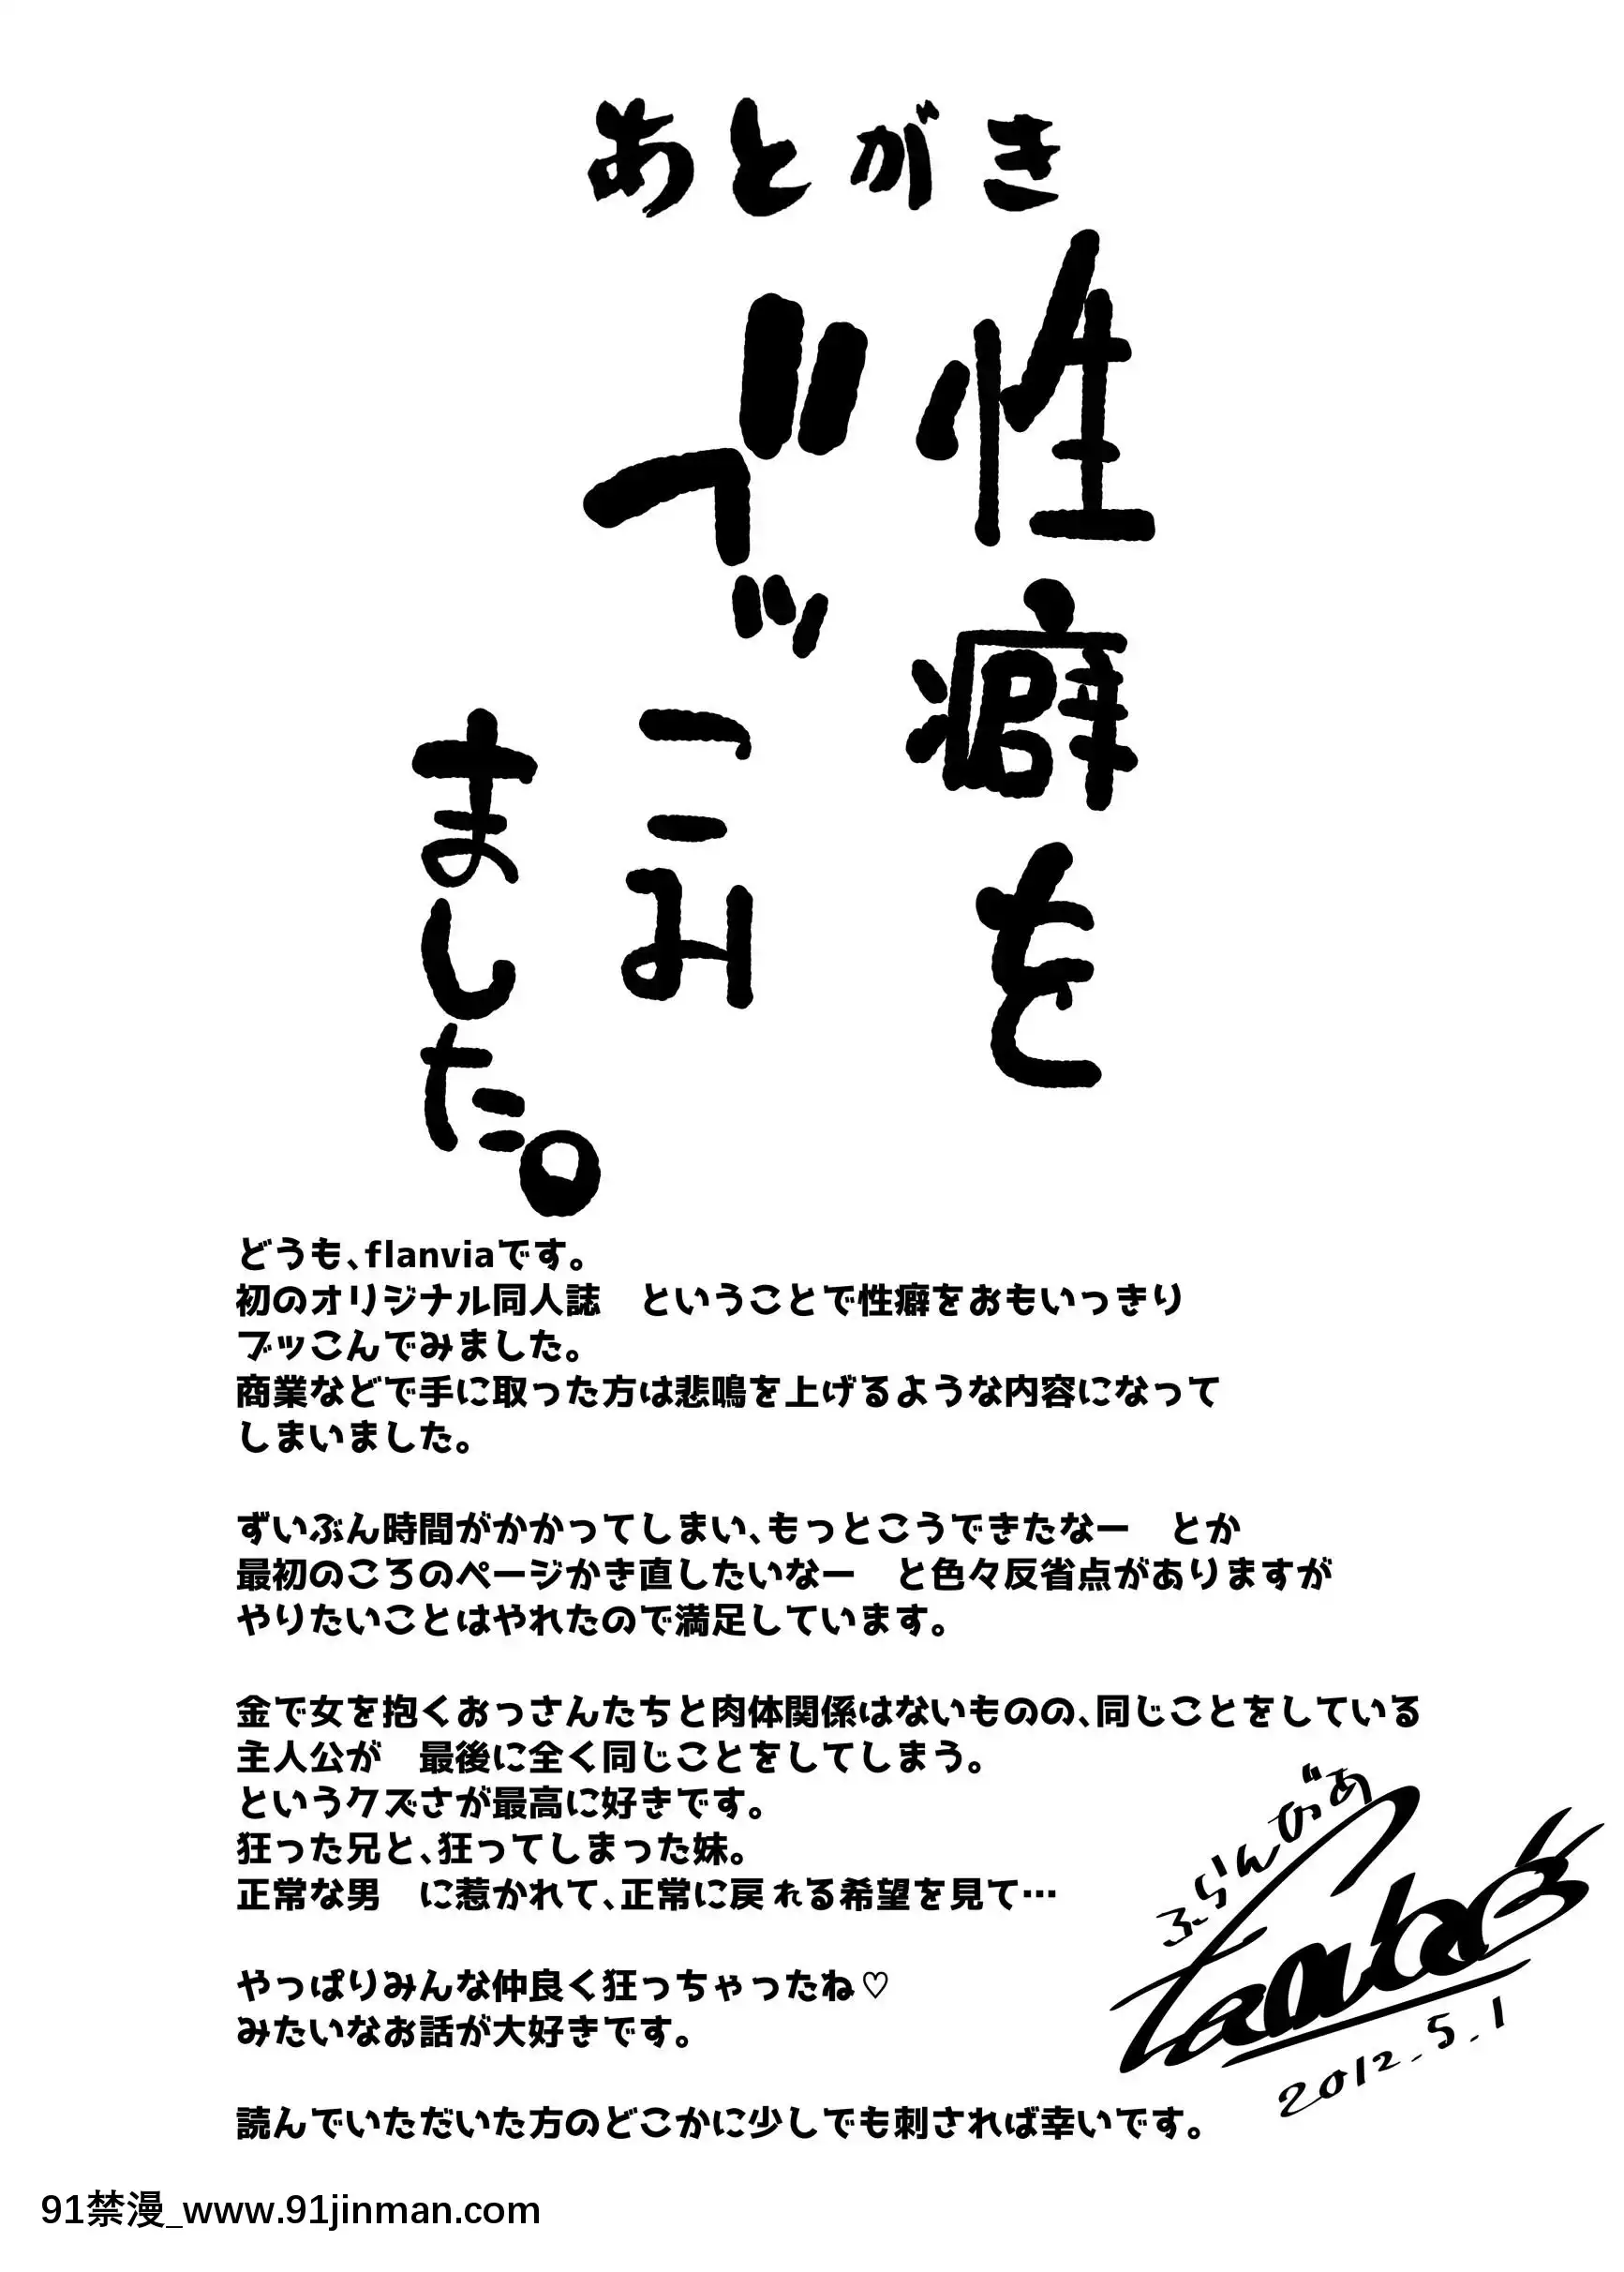 あとがき
性癖を
ブッ
こみ
ました。
どうも、flanviaです。
初のオリジナル同人誌　ということで性癖をおもいっきり
ブッこんでみました。
商業などで手に取った方は悲鳴を上げるような内容になって
しまいました。
ずいぶん時間がかかってしまい、もっとこうできたなー　とか
最初のころのページかき直したいなー　と色々反省点がありますが
やりたいことはやれたので満足しています。
金で女を抱くおっさんたちと肉体関係はないものの、同じことをしている
主人公が　最後に全く同じことをしてしまう。
というクズさが最高に好きです。
狂った兄と、狂ってしまった妹。
正常な男　に惹かれて、正常に戻れる希望を見て…
やっぱりみんな仲良く狂っちゃったね♡
みたいなお話が大好きです。
読んでいただいた方のどこかに少しでも刺されば幸いです。
ふらんびあ
2012.5.1
91禁漫_www.91jinman.com